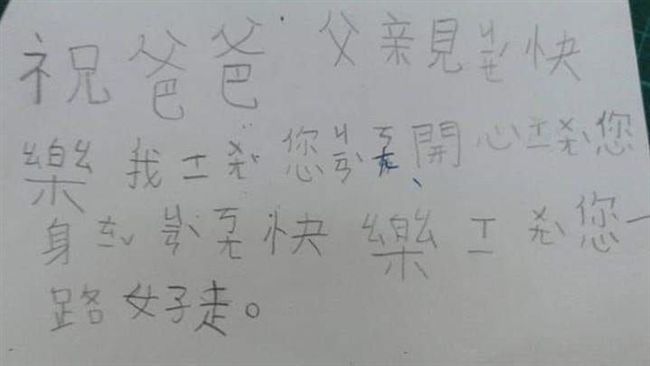 祝爸爸 父親見ㄐㄧㄝ快
樂 我ㄒㄧㄨㄤˋ您ㄐㄧㄢㄎㄤ、開心ㄒㄧㄨㄤˋ您
身ㄊㄧˇㄐㄧㄢㄎㄤ快樂ㄒㄧㄨㄤˋ您一
路好走。